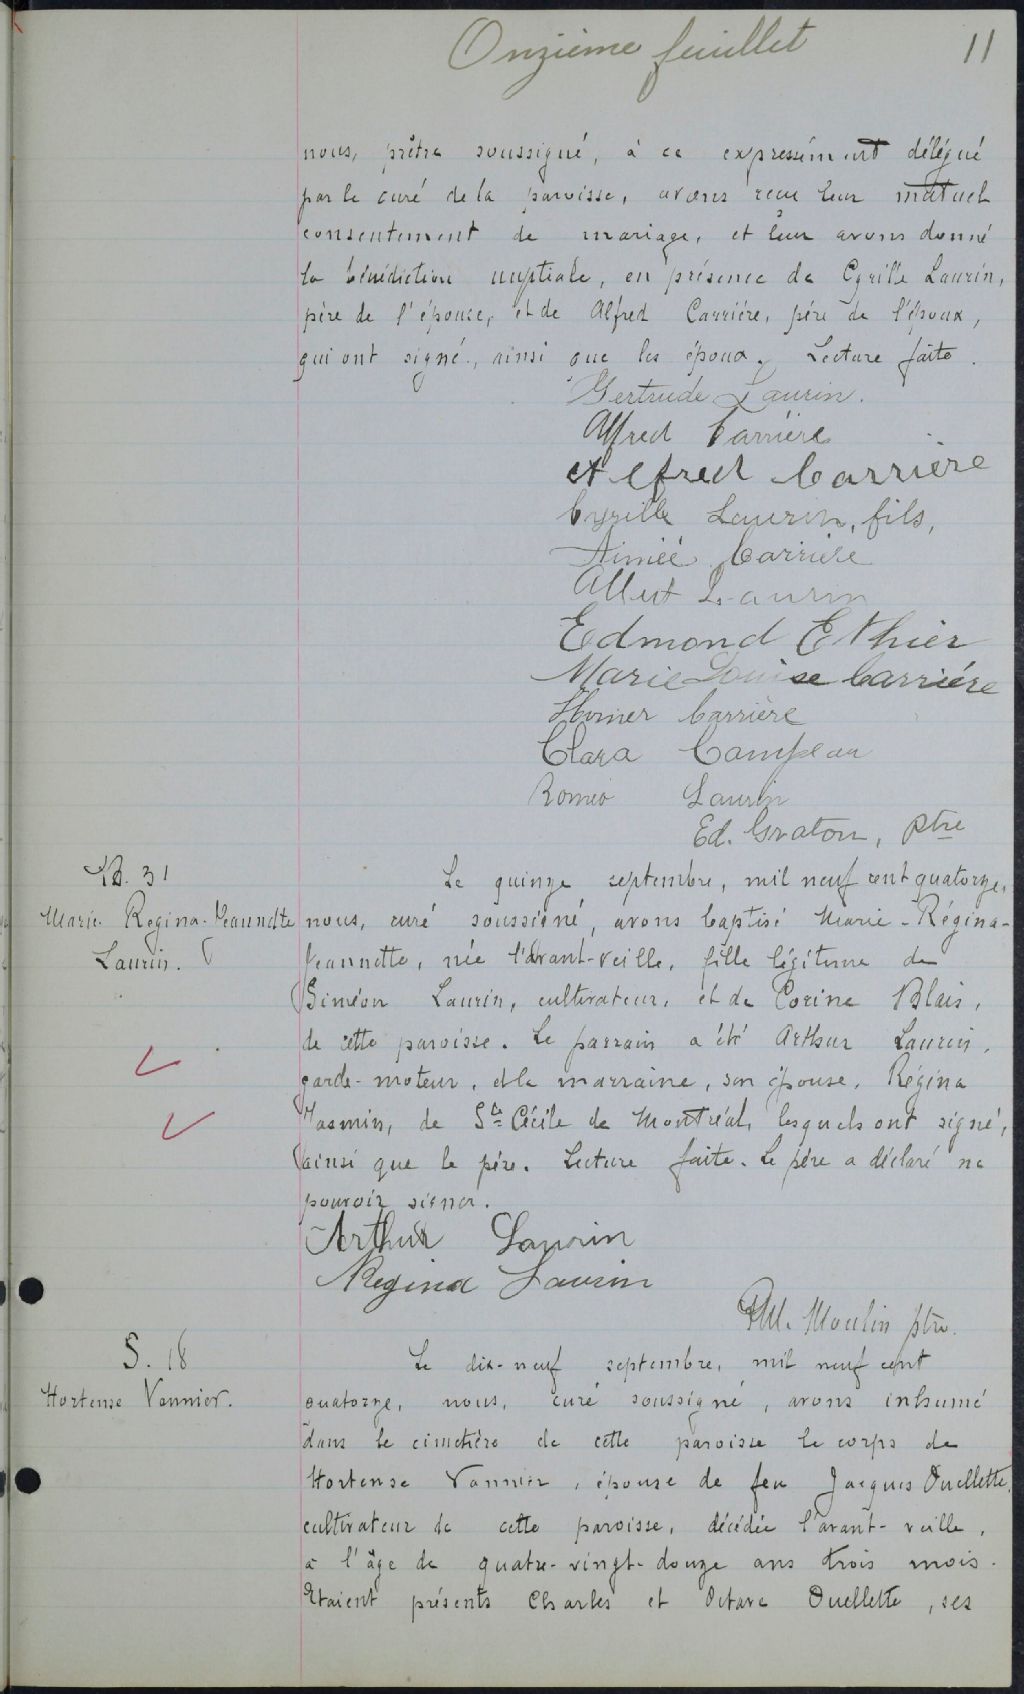 Onzième feuillet
11
nous, prêtre soussigné, à ce expressément délégué
par le curé de la paroisse, avons reçu leur mutuel
consentement de mariage, et leur avons donné
la bénédiction nuptiale, en présence de Cyrille Laurin,
père de l'épouse, et de Alfred Carrière, père de l'époux,
qui ont signé, ainsi que les époux. Lecture faite.
Gertrude Laurin.
Alfred Carrière
Alfred Carrière
Cyrille Laurin, fils,
Aimée Carrière
Albert Laurin
Edmond Ethier
Marie Louise Carriére
Homer Carrière
Clara Campeau
Romeo Laurin
Ed. Graton, ptre
B. 31
Marie Regina-Jeannette
Laurin.
Le quinze septembre, mil neuf cent quatorze,
nous, curé soussigné, avons baptisé Marie-Régina-
Jeannette, née l'avant-veille, fille légitime de
Siméon Laurin, cultivateur, et de Corine Blais,
de cette paroisse. Le parrain a été Arthur Laurin,
garde-moteur, et la marraine, son épouse, Régina
Jasmin, de Ste Cécile de Montréal, lesquels ont signé,
ainsi que le père. Lecture faite. Le père a déclaré ne
pouvoir signer.
Arthur Laurin
Regina Laurin
Moulin ptre.
S. 18
Hortense Vannier.
Le dix-neuf septembre, mil neuf cent
quatorze, nous, curé soussigné, avons inhumé
dans le cimetière de cette paroisse le corps de
Hortense Vannier, épouse de feu Jacques Ouellette,
cultivateur de cette paroisse, décédée l'avant-veille,
a l'âge de quatre-vingt-douze ans trois mois.
Etaient présents Charles et Octave Ouellette, ses